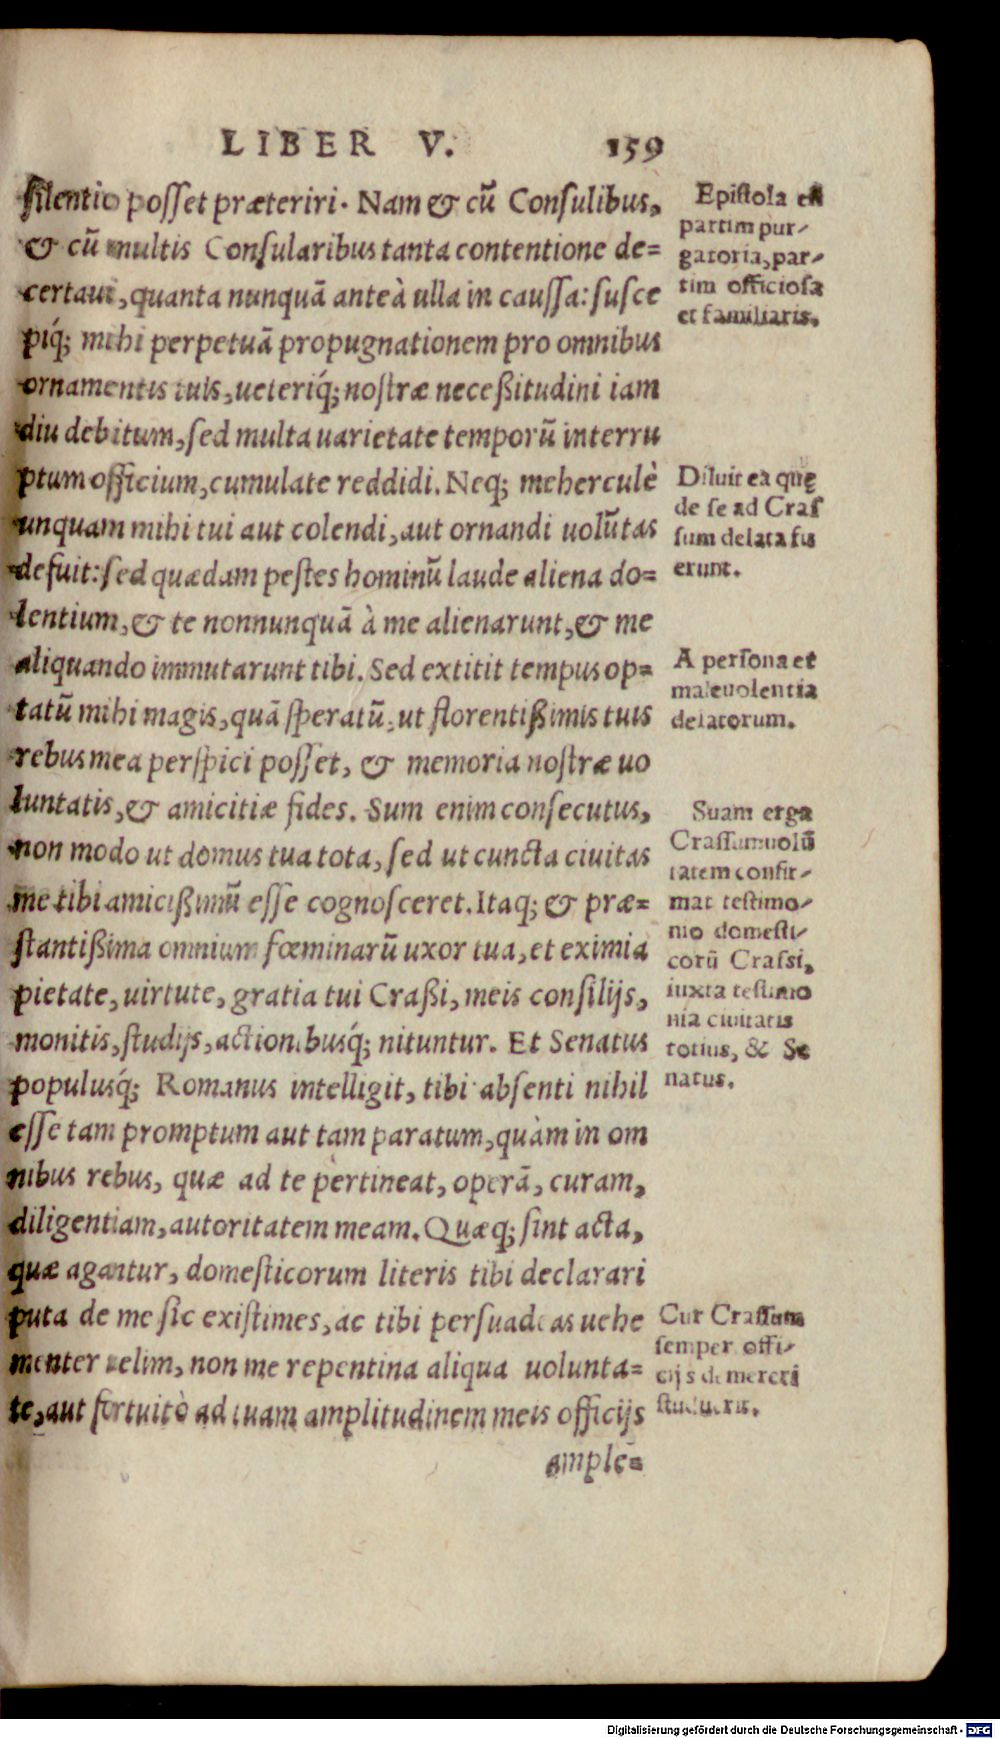 LIBER V. 159
silentio posset præteriri. Nam & cū Consulibus,
& cū multis Consularibus tanta contentione de=
certaui, quanta nunquā anteà ulla in caussa: susce
píq; mihi perpetuā propugnationem pro omnibus
ornamentis tuis, ueteriq́; nostræ neceßitudini iam
diu debitum, sed multa uarietate temporū interru
ptum officium, cumulate reddidi. Neq; meherculè
unquam mihi tui aut colendi, aut ornandi uolūtas
defuit: sed quædam pestes hominū laude aliena do=
lentium, & te nonnunquā à me alienarunt, & me
aliquando immutarunt tibi. Sed extitit tempus op=
tatū mihi magis, quā speratū: ut florentißimis tuis
rebus mea perspici posset, & memoria nostræ uo
luntatis, & amicitiæ fides. Sum enim consecutus,
non modo ut domus tua tota, sed ut cuncta ciuitas
me tibi amicißimū esse cognosceret. Itaq; & præ=
stantißima omnium fœminarū uxor tua, et eximia
pietate, uirtute, gratia tui Craßi, meis consilijs,
monitis, studijs, actionibusq́; nituntur. Et Senatus
populusq́; Romanus intelligit, tibi absenti nihil
esse tam promptum aut tam paratum, quàm in om
nibus rebus, quæ ad te pertineat, operā, curam,
diligentiam, autoritatem meam. Quæq; sint acta,
quæ agantur, domesticorum literis tibi declarari
puta de me sic existimes, ac tibi persuadeas uehe
menter uelim, non me repentina aliqua uolunta=
te, aut fortuitò ad tuam amplitudinem meis officijs
ample=
Epistola est
partim pur-
gatoria, par-
tim officiosa
et familiaris.
Diluit ea quę
de se ad Cras
sum delata fu
erunt.
A persona et
maleuolentia
delatorum.
Suam erga
Crassum uolū
tatem confir-
mat testimo-
nio domesti-
corū Crassi,
iuxta testimo
nia ciuitatis
totius, & Se
natus.
Cur Crassum
semper offi-
cijs demereri
studuerit.
Digitalisierung gefördert durch die Deutsche Forschungsgemeinschaft - DFG